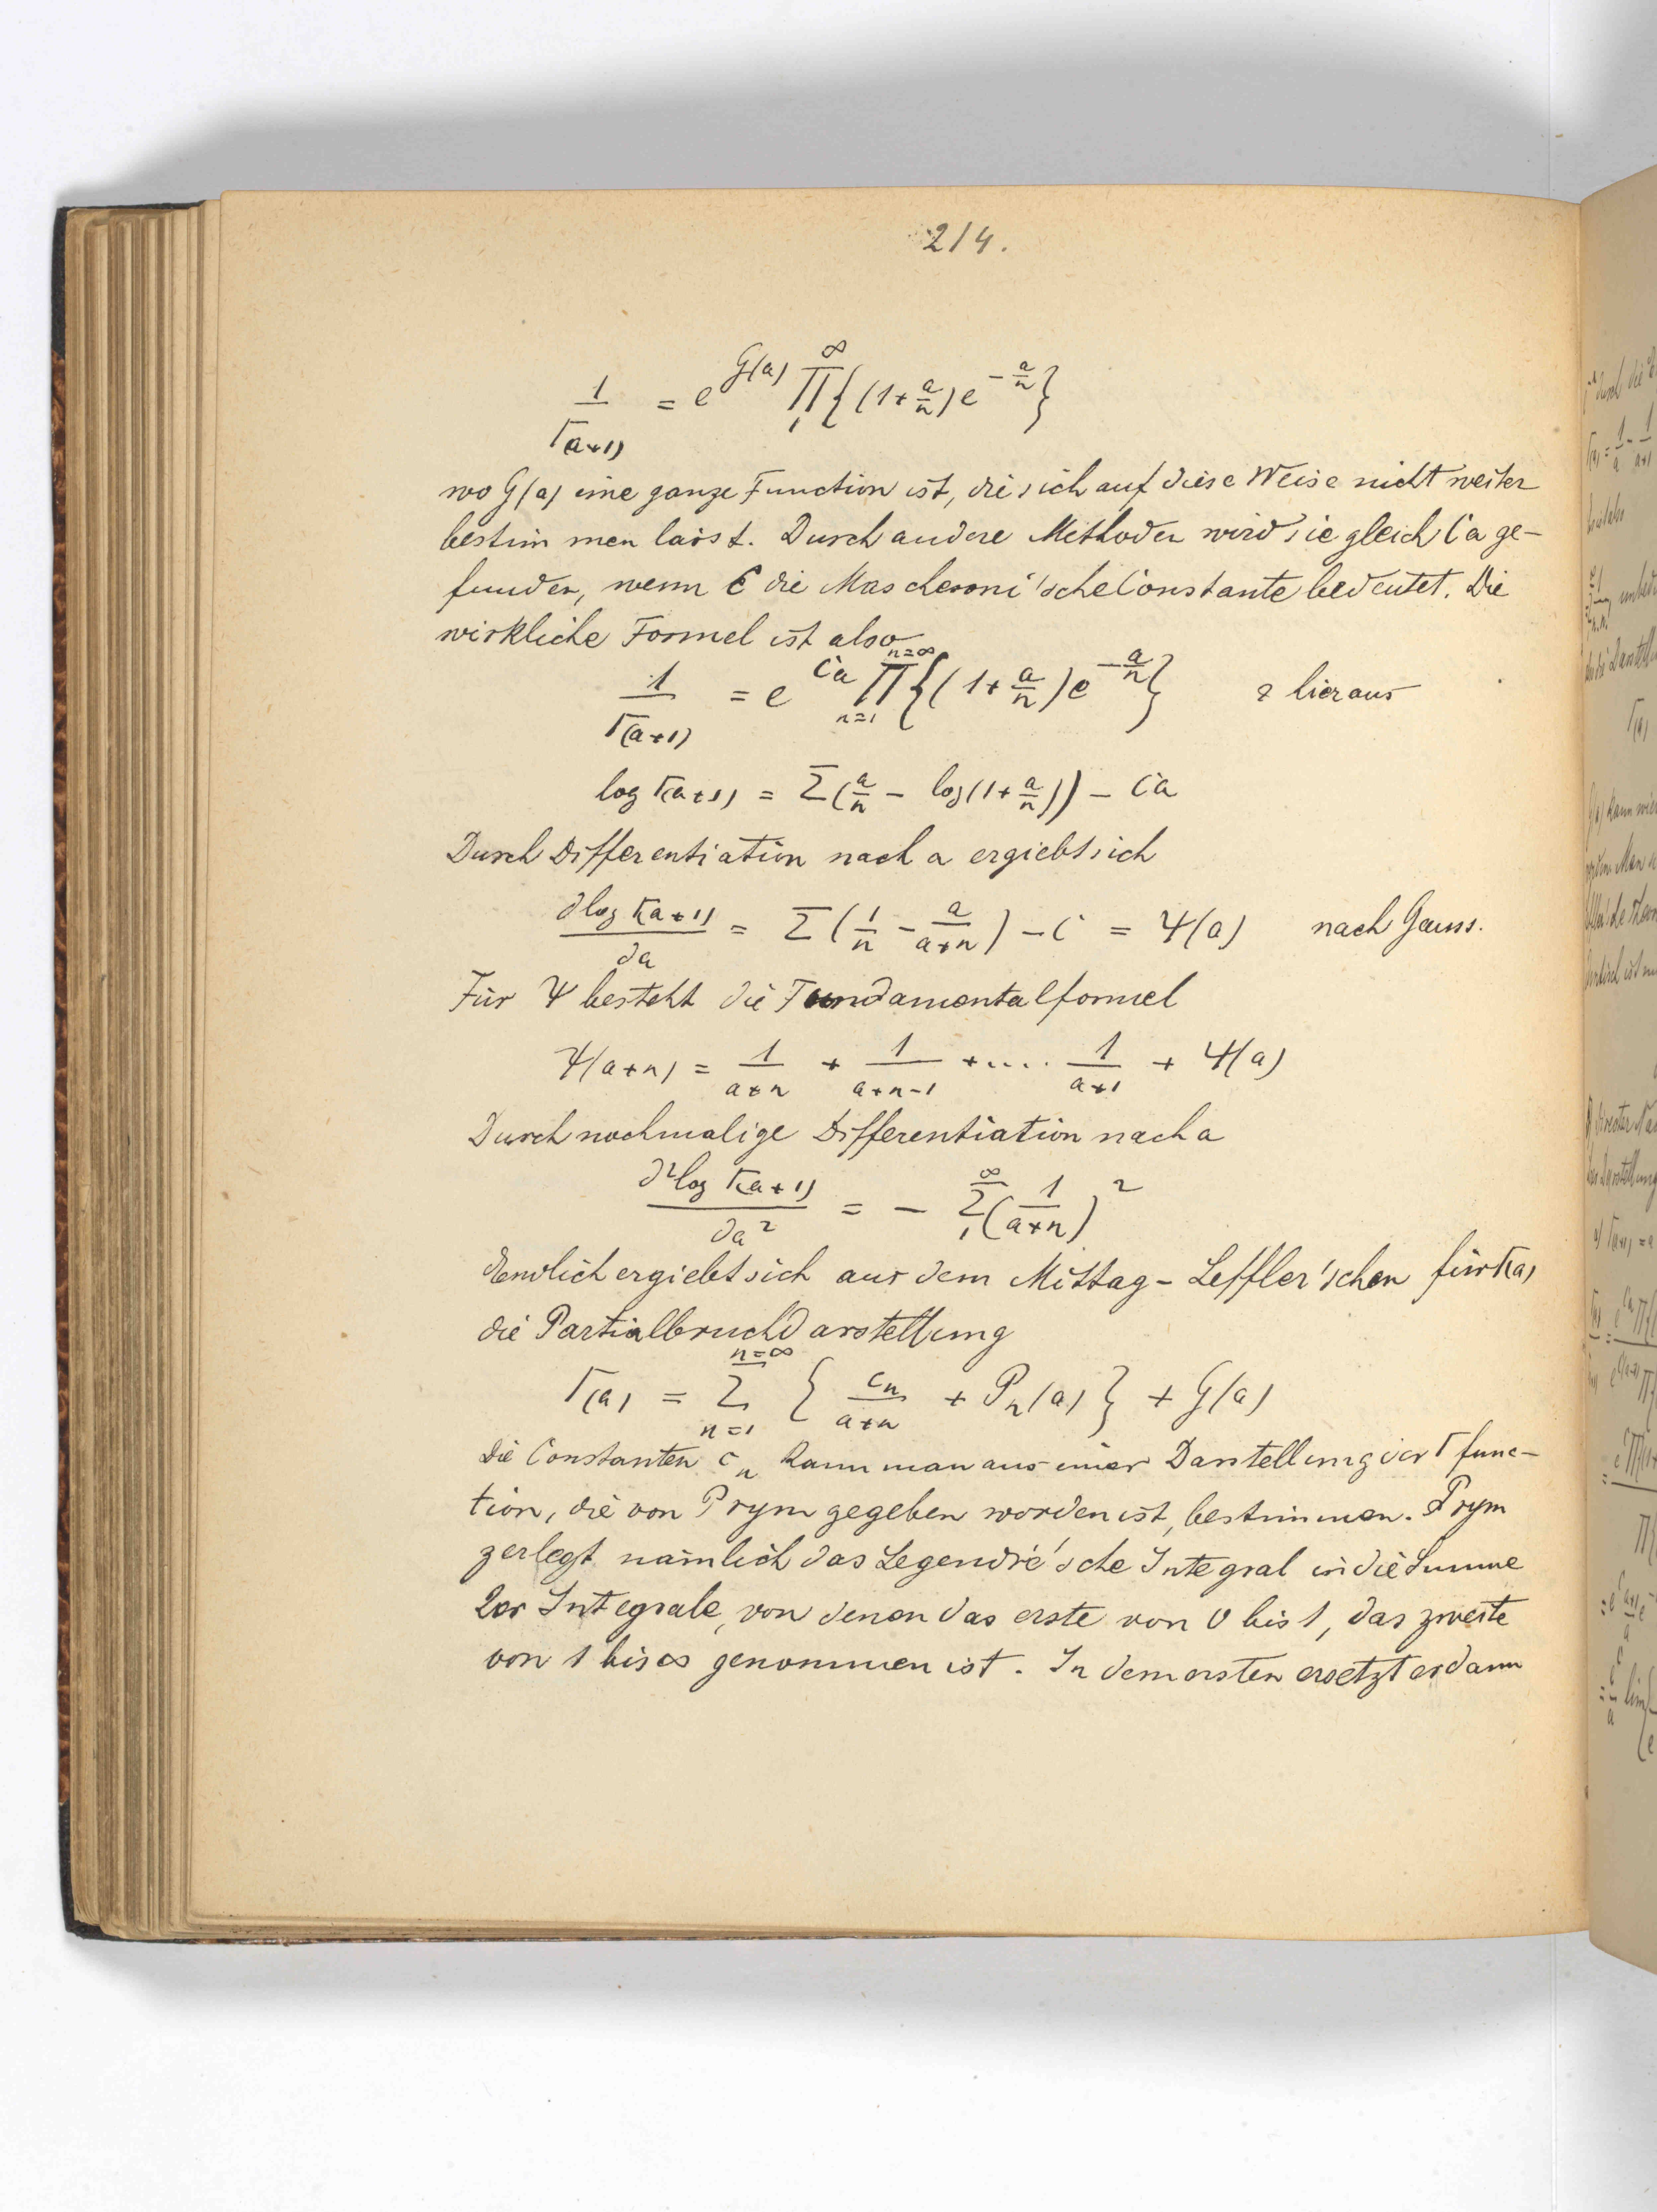 214.
1/Γ(a+1) = e^G(a) ∏₁^∞ {(1+a/n)e^-a/n}
wo G(a) eine ganze Function ist, die sich auf diese Weise nicht weiter
bestimmen lässt. Durch andere Methoden wird sie gleich Ca ge-
funden, wenn C die Mascheroni'sche Constante bedeutet. Die
wirkliche Formel ist also
1/Γ(a+1) = e^Ca ∏_{n=1}^{n=∞} {(1+a/n)e^-a/n} & hieraus
log Γ(a+1) = Σ(a/n - log(1+a/n)) - Ca
Durch Differentiation nach a ergiebt sich
∂log Γ(a+1)/∂a = Σ(1/n - a/(a+n)) - C = Ψ(a) nach Gauss.
Für Ψ besteht die Fundamentalformel
Ψ(a+n) = 1/(a+n) + 1/(a+n-1) + .... 1/(a+1) + Ψ(a)
Durch nochmalige Differentiation nach a
∂²log Γ(a+1)/∂a² = - Σ₁^∞ (1/(a+n))²
Endlich ergiebt sich aus dem Mittag-Leffler'schen für Γ(a)
die Partialbruchdarstellung
Γ(a) = Σ_{n=1}^{n=∞} {c_n/(a+n) + P_n(a)} + G(a)
Die Constanten c_n kann man aus einer Darstellung der Γ func-
tion, die von Prym gegeben worden ist, bestimmen. Prym
zerlegt nämlich das Legendre'sche Integral in die Summe
2er Integrale, von denen das erste von 0 bis 1, das zweite
von 1 bis ∞ genommen ist. In dem ersten ersetzt er dann